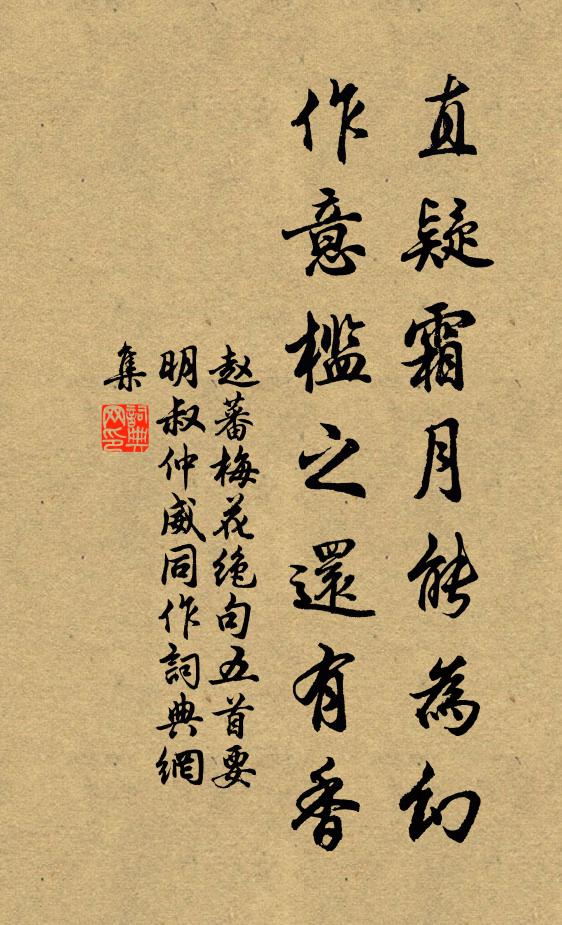 直疑霜月能為幻
作意檻之還有香
赵蕃梅花绝句五首要
明叔仲威同作詞典網
集
詞典
网印